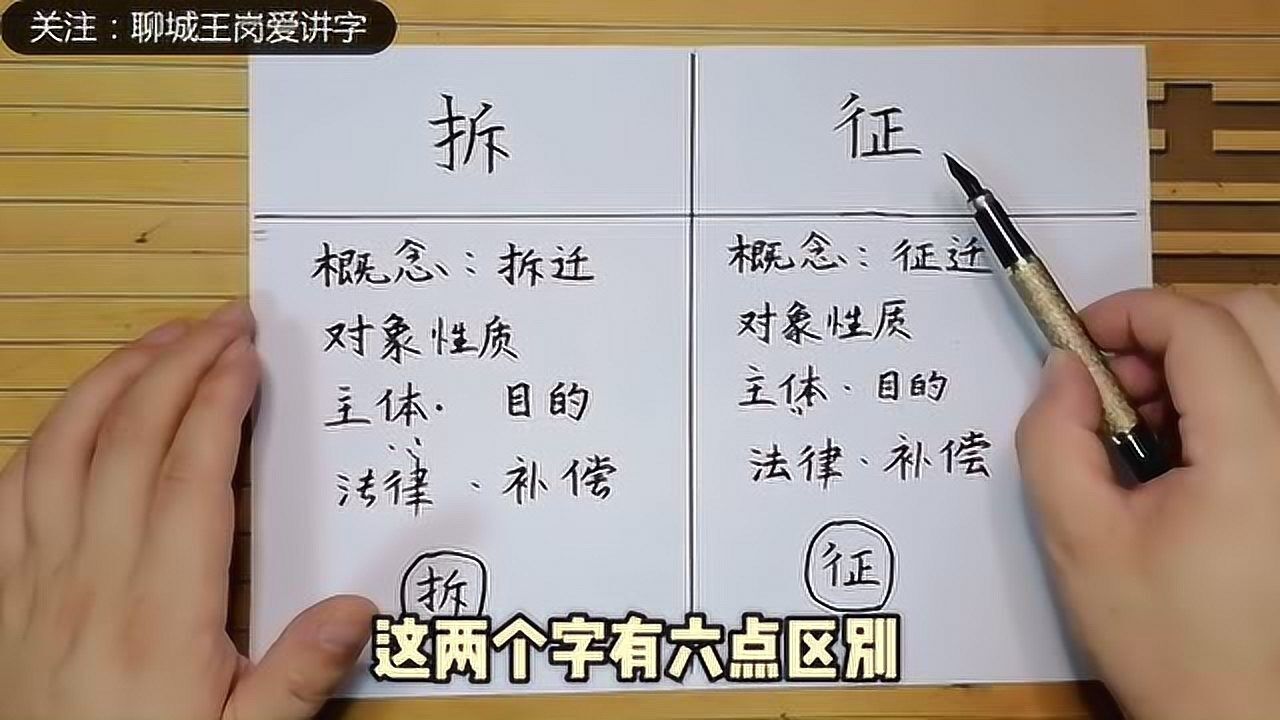 关注：聊城王岗爱讲字
拆
征
概念：拆迁
对象性质
主体· 目的
法律·补偿
拆
概念：征迁
对象性质
主体·目的
法律·补偿
征
这两个字有六点区别